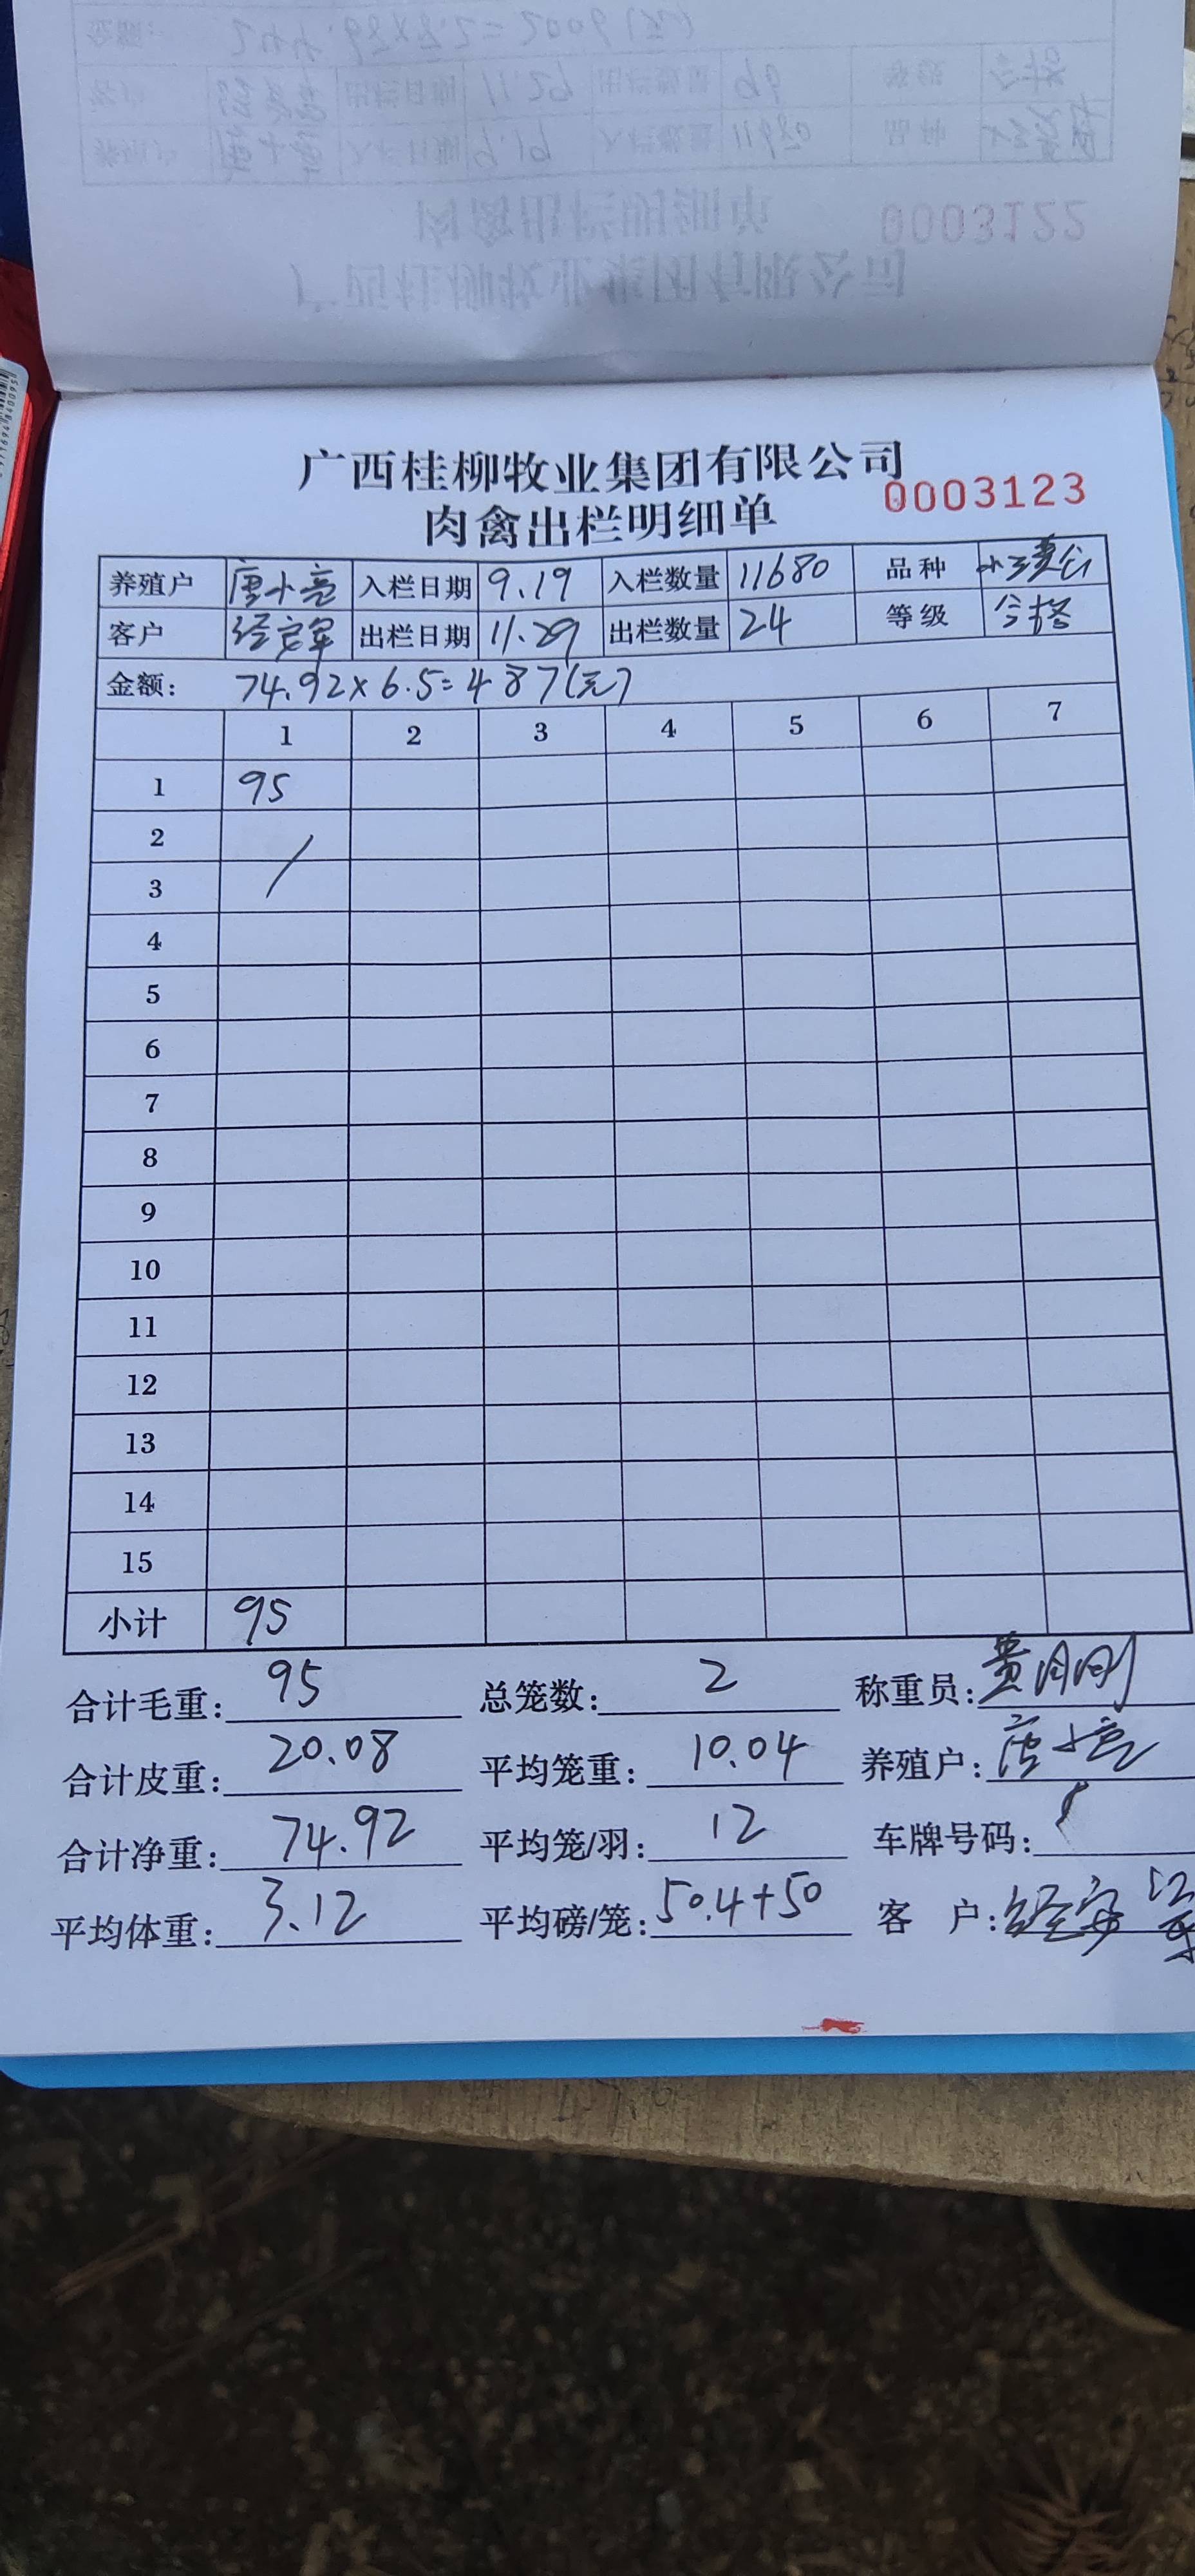 0003122
广西桂柳牧业集团有限公司
肉禽出栏明细单
0003123
养殖户 唐小亮 入栏日期 9.19 入栏数量 11680 品种
客户 出栏日期 11.29 出栏数量 24 等级 合格
金额: 74.92×6.5=487(元)
1 2 3 4 5 6 7
1 95
2
3
4
5
6
7
8
9
10
11
12
13
14
15
小计 95
合计毛重: 95 总笼数: 2 称重员:
合计皮重: 20.08 平均笼重: 10.04 养殖户: 唐小亮
合计净重: 74.92 平均笼/羽: 12 车牌号码:
平均体重: 3.12 平均磅/笼: 50.4+50 客 户: